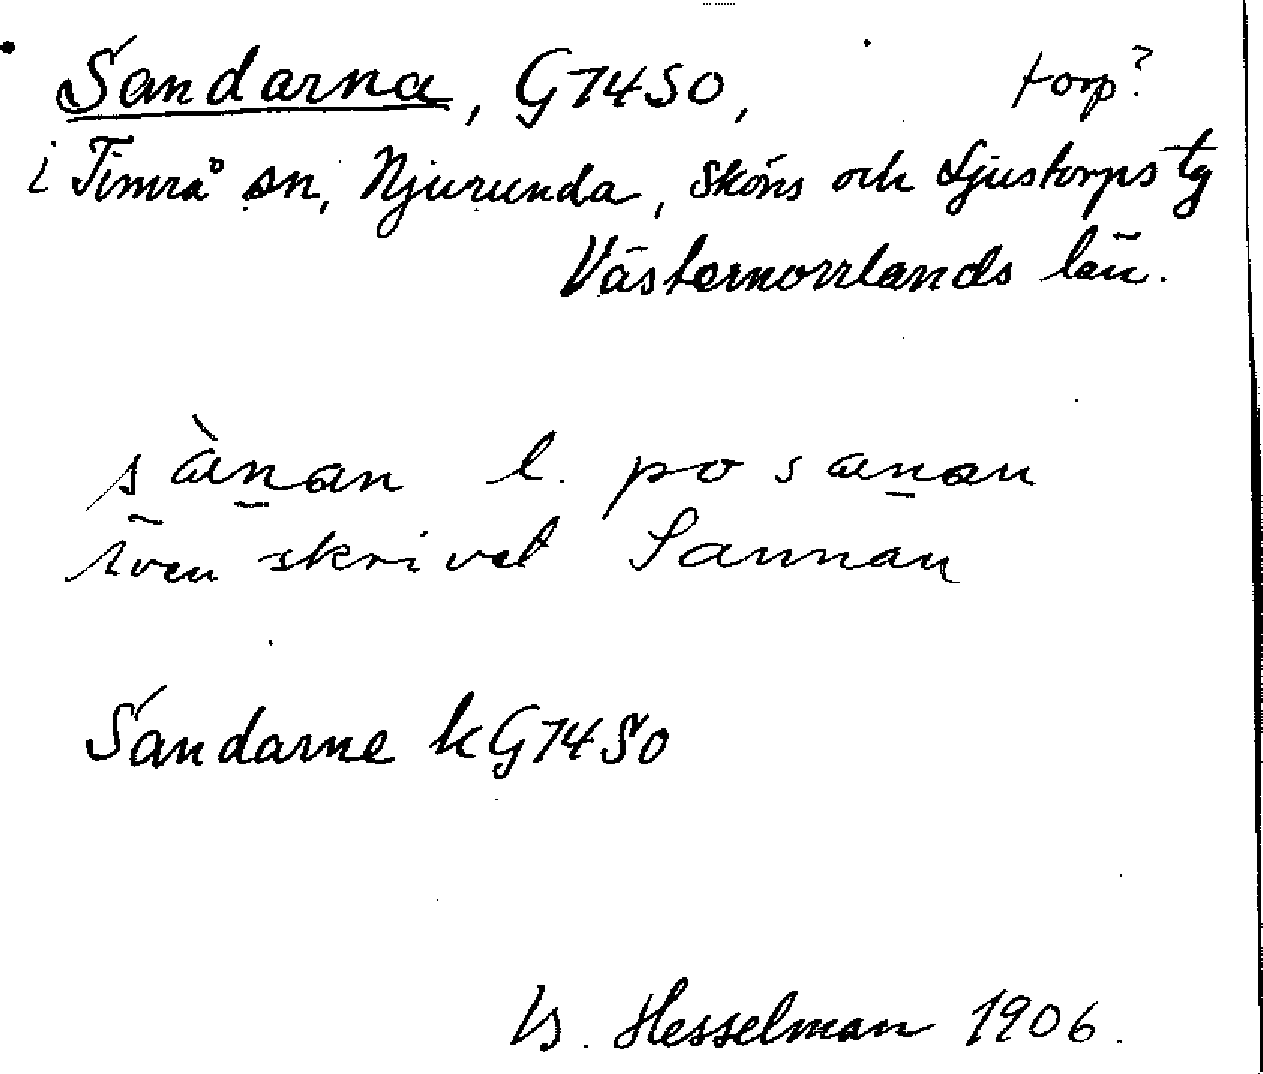 Sandarna, G74SO, torp?
i Timrå sn, Njurunda, Sköns och Ljustorps tg
Västernorrlands län.
sànan l. po sanan
även skrivet Sannan
Sandarne k G74SO
B. Hesselman 1906.